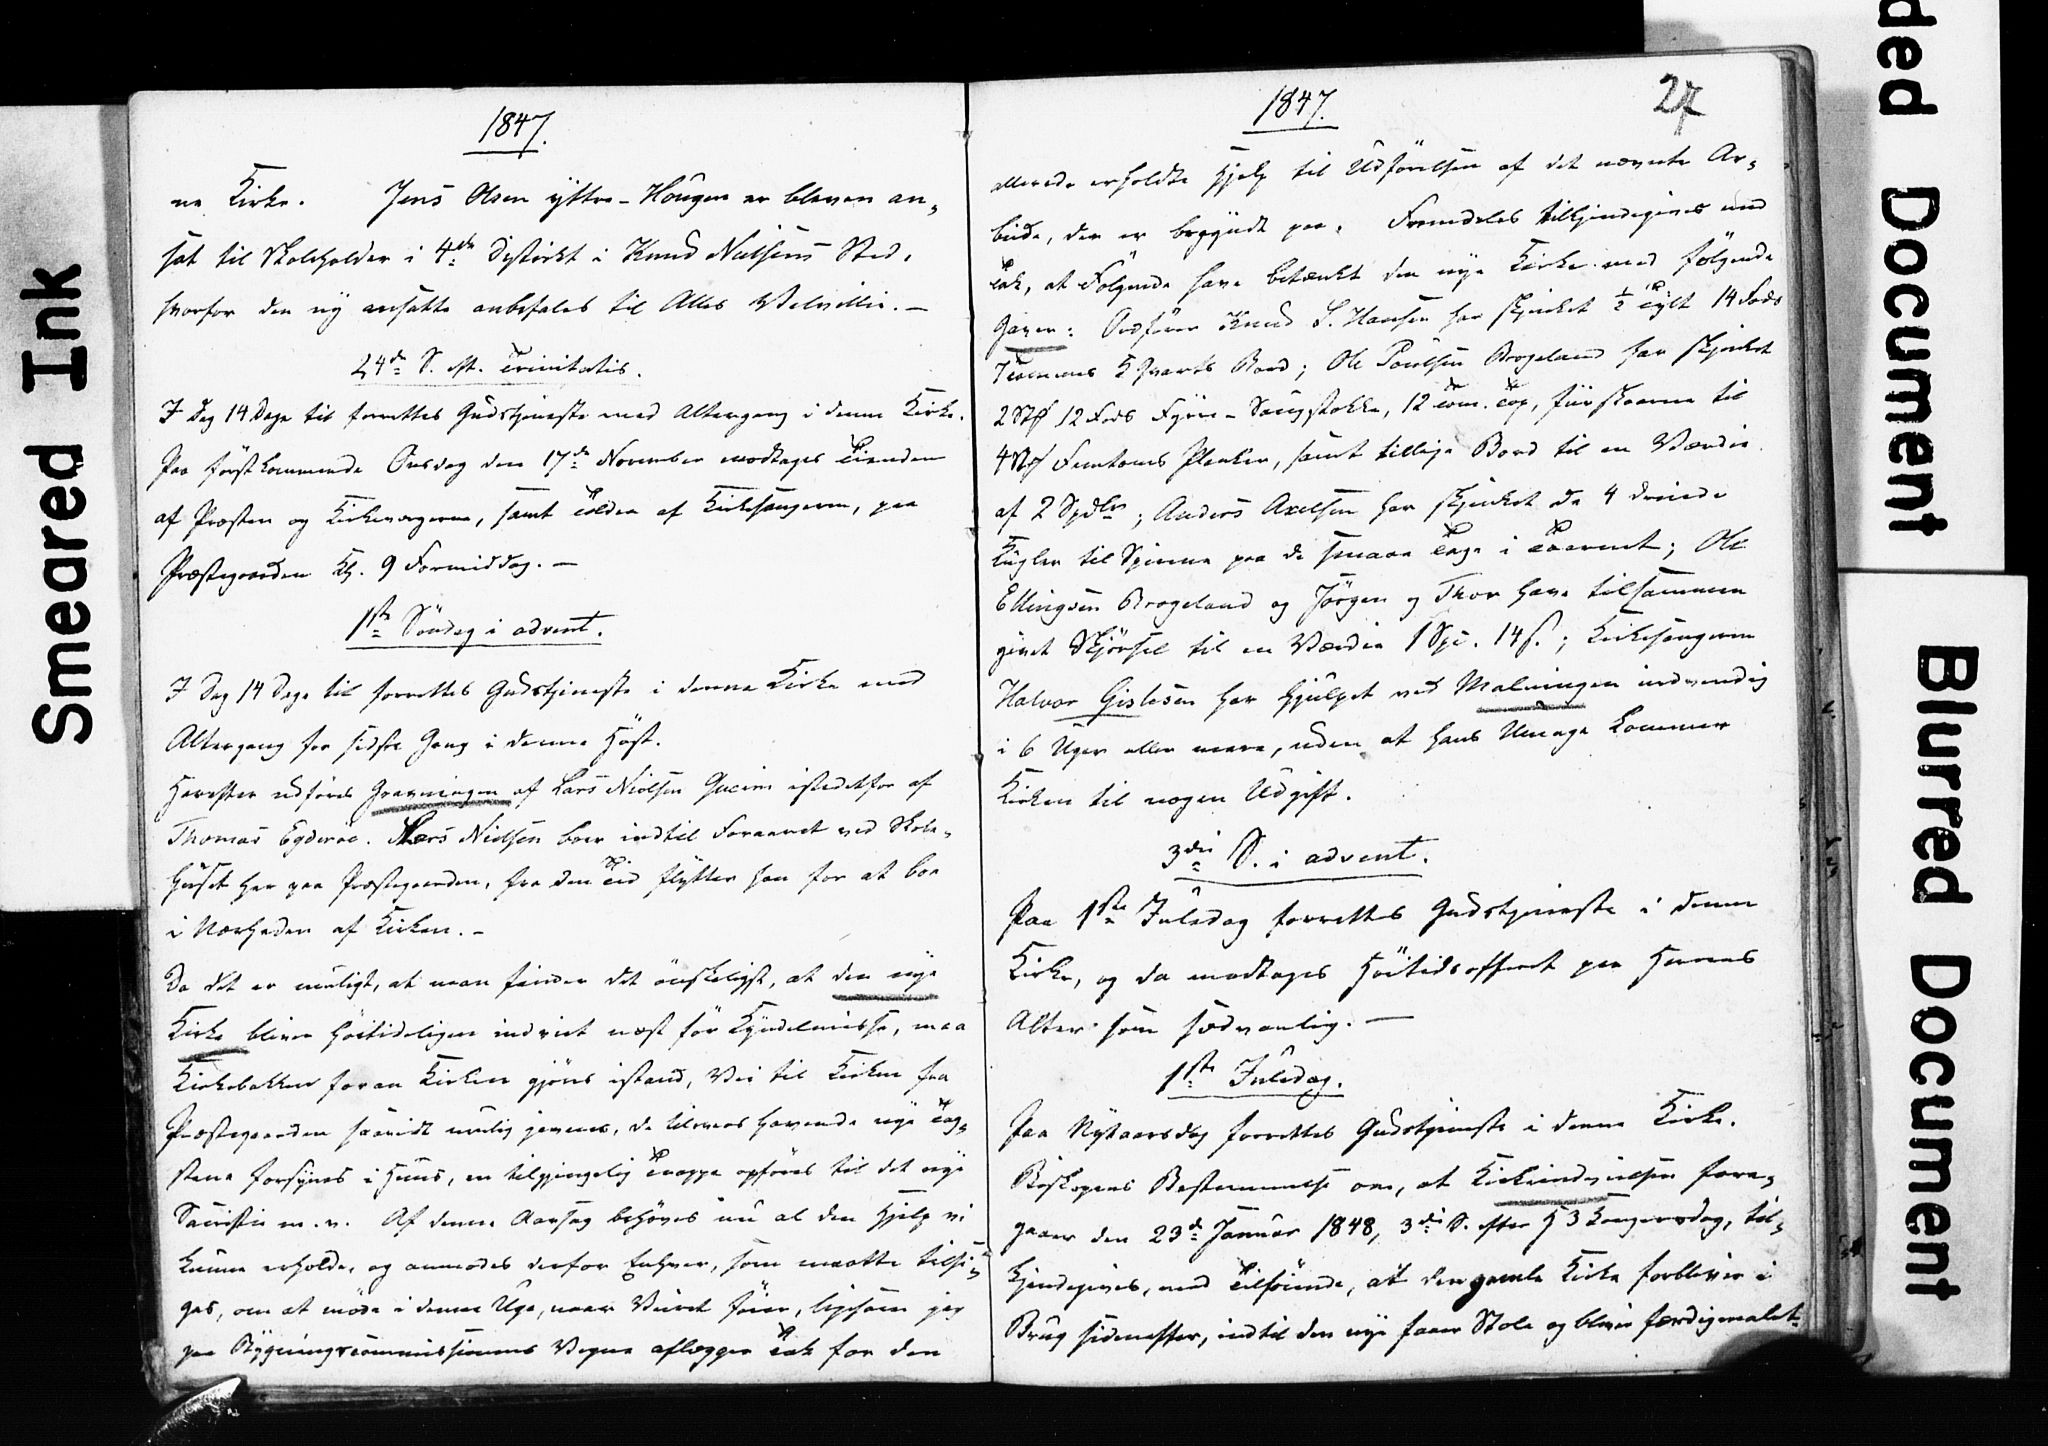 1847.
ne Kirke. Jens Olsen yttre-Hougen er bleven an-
sat til Skoleholder i 4de District i Knud Nielsens Sted,
hvorfor den ny ansatte anbefales til Alles Velvillie. —
24de S. eft. Trinitatis.
I Dag 14 Dage til forrettes Gudstjeneste med Altergang i denne Kirke.
Paa førstkommende Onsdag den 17de November modtages Tienden
af Præsten og Kirkeværgerne, samt Tolden af Kirkesangeren, paa
Præstegaarden Kl. 9 Formiddag. —
1ste Søndag i advent.
I Dag 14 Dage til forrettes Gudstjeneste i denne Kirke med
Altergang for sidste Gang i denne Høst.
Herefter udføres Gravningen af Lars Nielsen istedetfor af
Thomas Egderøe. Lars Nielsen boer indtil Foraaret ved Skole-
huset her paa Præstegaarden, fra den Tid flytter han for at boe
i Nærheden af Kirken. –
Da det er muligt, at man finder det ønskeligst, at den nye
Kirke bliver høitideligen indviet næst før Kyndelmisse, maa
Kirkebakken foran Kirken gjøres istand, Vei til Kirken fra
Præstegaarden saavidt mulig jevnes, de tilovers havende nye Tag-
stene forsynes i Huus, en tilgjængelig Trappe opføres til det nye
Sacristie m. v. Af denne Aarsag behøves nu al den Hjelp vi
kunne erholde, og anmodes derfor Enhver, som maatte tilsi-
ges, om at møde i denne Uge, naar Veiret føier, ligesom jeg
paa Bygningscommissionens Vegne aflægger Tak for den
1847.
27
allerede erholdte Hjelp til Udførelsen af det nævnte Ar-
beide, der er begyndt paa. Fremdeles tilkjendegives med
Tak, at Følgende have betænkt den nye Kirke med følgende
Gaver: Ordfører Knud S. Hansen har skjenket ½ Tylt 14 Fods
Tommes Qvarts Bord; Ole Poulsen Brogeland har skjenket
2 Stk 12 Fods Fyrre-Saugstokke, 12 Tom. Top, skaarne til
4 Stk Femtoms Planker, samt tillige Bord til en Værdie
af 2 Spdlr; Anders Axelsen har skjenket de 4 dreiede
Kugler til Spirene paa de smaae Tage i Taarnet; Ole
Ellingsen Brogeland og Jørgen og Thor have tilsammen
givet Skjørsel til en Værdie 1 Spe. 14 s.; Kirkesangeren
Halvor Gislesen har hjulpet ved Malningen indvendig
i 6 Uger eller mere, uden at hans Umage kommer
Kirken til nogen Udgift.
3die S. i advent.
Paa 1ste Juledag forrettes Gudstjeneste i denne
Kirke, og da modtages Høitidsofferet paa Herrens
Alter som sædvanlig. —
1ste Juledag.
Paa Nytaarsdag forrettes Gudstjeneste i denne Kirke.
Biskopens Bestemmelse om, at Kirkeindvielsen fore-
gaaer den 23de Januar 1848, 3die S. efter H 3 Kongersdag, til-
kjendegives, med Tilføiende, at den gamle Kirke forbliver i
Brug sidenefter, indtil den nye faaer Stole og bliver færdigmalet.
Smeared Ink
ded Document
Blurred Document